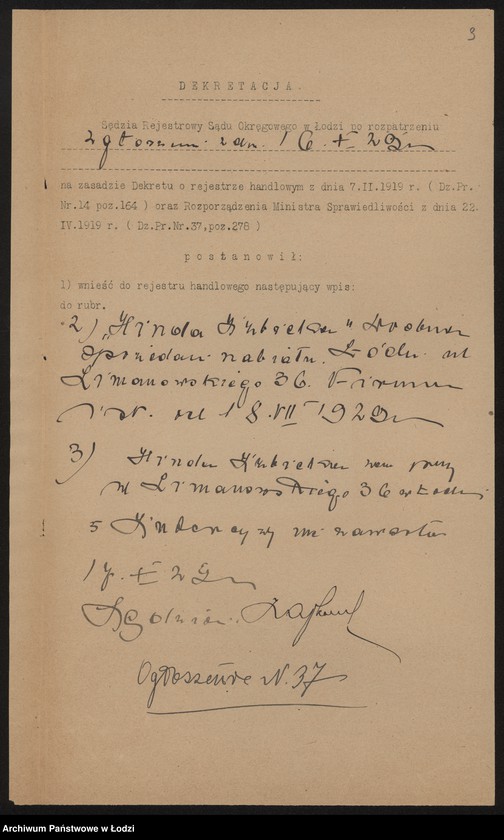 3
DEKRETACJA.
Sędzia Rejestrowy Sądu Okręgowego w Łodzi po rozpatrzeniu
zgłoszen. z dn. 16. X 29 r
na zasadzie Dekretu o rejestrze handlowym z dnia 7.II.1919 r. ( Dz.Pr.
Nr.14 poz.164 ) oraz Rozporządzenia Ministra Sprawiedliwości z dnia 22.
IV.1919 r. ( Dz.Pr.Nr.37,poz.278 )
postanowił:
1) wnieść do rejestru handlowego następujący wpis:
do rubr.
2) „Hinda Kubicka" Drobna
sprzedaż nabiału. Łódź. ul
Limanowskiego 36. Firma
istn. od 18.VII 1929 r
3) Hinda Kubicka zam przy
ul Limanowskiego 36 w Łodzi
5 Intercyzy nie zawarła
X 29 r
Sędzia
Ogłoszenie N. 37
Archiwum Państwowe w Łodzi